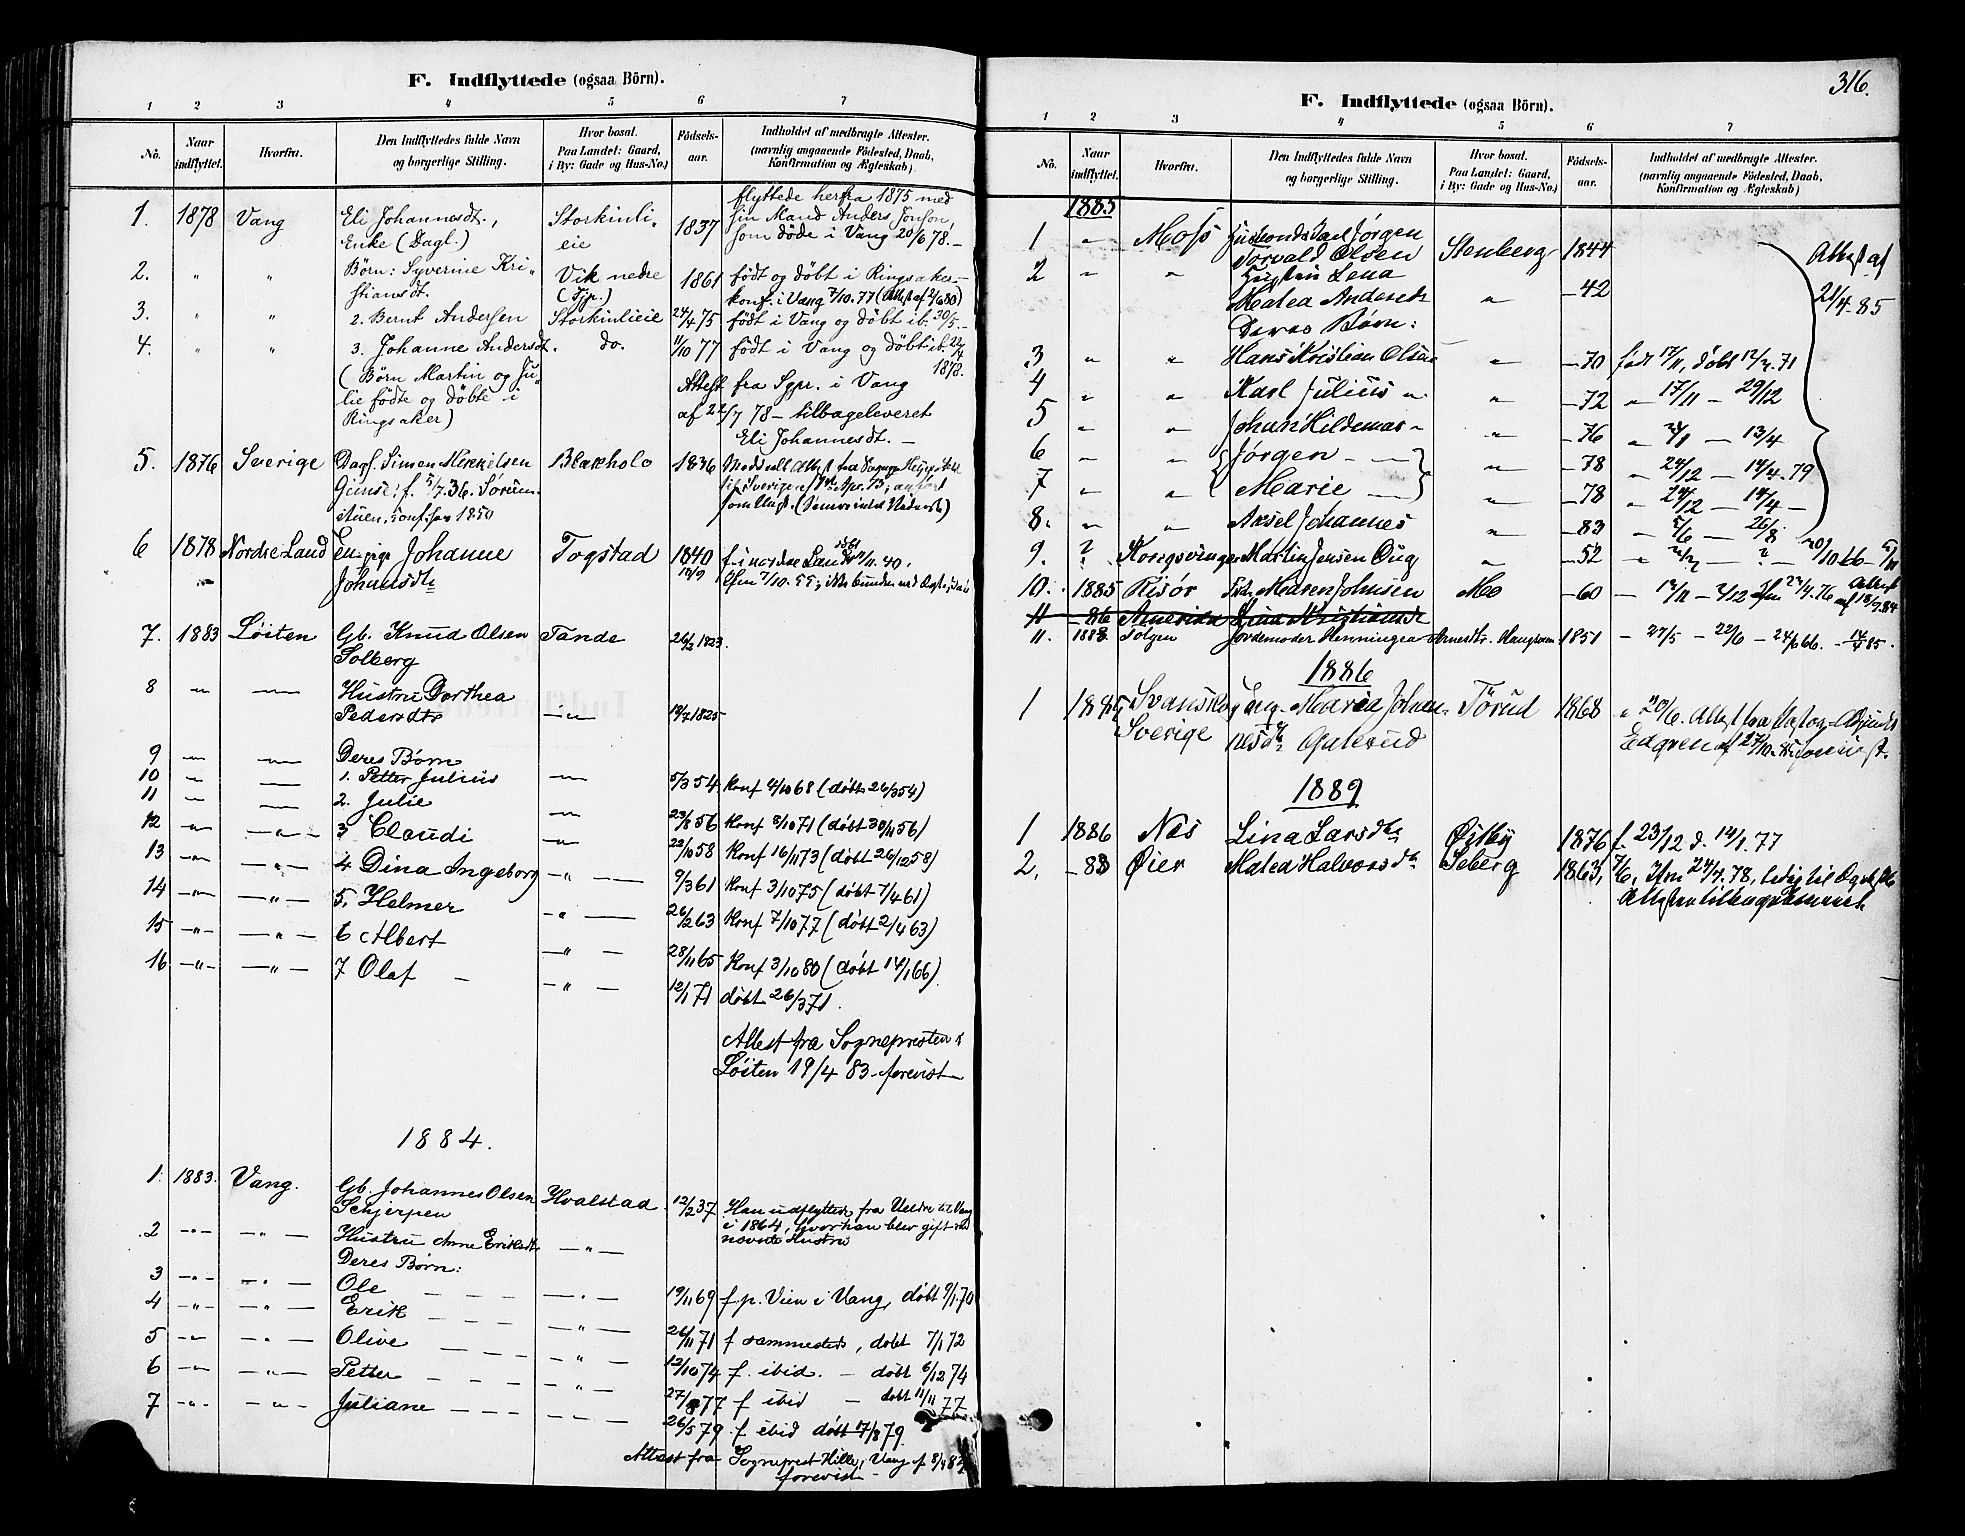 F. Indflyttede (ogsaa Börn).
1 2 3 4 5 6 7
No. Naar indflyttet. Hvorfra. Den Indflyttedes fulde Navn og borgerlige Stilling. Hvor bosat. Paa Landet: Gaard, i By: Gade og Hus-No.) Födsels-aar. Indholdet af medbragte Attester. (navnlig angaaende Födested, Daab, Konfirmation og Ægteskab)
flyttede herfra 1875 med
1. 1878 Vang Eli Johannesdt., Storkinli, 1837 sin Mand Anders Jonson,
Enke (Dagl.) eie som døde i Vang 20/6 78. –
2. " " Børn: Syverine Kri- Vik nedre 1861 født og døbt i Ringsaker –
stiansdt. (Tjp.) konf. i Vang 7/10. 77 (Attest af 2/6 80)
3. " " 2. Bernt Andersen Storkinlieie 24/4 75 født i Vang og døbt ib. 30/5. –
4. " " 3. Johanne Andersdt. do. 11/10 77 født i Vang og døbt ib. 22/4 1878.
(Børn Martin og Ju- Attest fra Spr. i Vang
lie fødte og døbte i af 22/7 78 – tilbageleveret
Ringsaker) Eli Johannesdt. –
5. 1876 Sverige Dagl. Simen Mikkelsen 1836
f. 5/7. 36.
1850
6 1878 Nordre Land Johanne Togstad 1840 f. i nordre Land 11. 40.
Johansdtr
7. 1883 Løiten Gb. Knud Olsen Tande 26/2 1823.
Solberg
8 – " – – " – Hustru Dorthea
Pedersdtr – " – 18/7 1825
9 – " – – " – Deres Børn
10 – " – – " – 1. Petter Julius – " – 5/3 54 konf 4/10 68 (døbt 26/3 54)
11 – " – – " – 2. Julie – " – 23/8 56 konf 8/10 71 (døbt 30/11 56)
12 – " – – " – 3 Claudi – " – 22/10 58 konf 16/11 73 (døbt 26/12 58)
13 – " – – " – 4 Dina Ingeborg – " – 9/3 61 konf 3/10 75 (døbt 7/4 61)
14 – " – – " – 5. Helmer – " – 26/2 63 konf 7/10 77 (døbt 2/4 63)
15 – " – – " – 6 Albert – " – 28/11 65 konf 3/10 80 (døbt 14/1 66)
16 – " – – " – 7 Olaf – – " – 12/1 71 døbt 26/3 71.
Attest fra Sognepresten i
Løiten 19/4 83 – forevist –
1884.
1. 1883. Vang. Gb. Johannes Olsen Hvalstad 12/2 37 Han udflyttede fra Veldre til Vang
Schjerpen i 1864, hvor han blev gift med
2 – " – – " – Hustru Anne Eriksdtr – " – nævnte Hustru
Deres Børn:
3 – " – – " – Ole – " – 19/11 69 f. p. Vien i Vang, døbt 9/1 70
4 – " – – " – Erik – " – 26/11 71 f sammesteds, døbt 7/1 72
5 – " – – " – Olive – " – 12/10 74 f. ibid. – døbt 6/12 74
6 – " – – " – Petter – " – 27/8 77 f ibid – døbt 11/11 77
7 – " – – " – Juliane – " – 26/5 79 f ibid døbt 17/8 79.
Attest fra Sogneprest Hille, Vang af 8/4 83
forevist –
316.
F. Indflyttede (ogsaa Börn).
1 2 3 4 5 6 7
No. Naar indflyttet. Hvorfra. Den Indflyttedes fulde Navn og borgerlige Stilling. Hvor bosat. Paa Landet: Gaard, i By: Gade og Hus-No.) Födsels-aar. Indholdet af medbragte Attester. (navnlig angaaende Födested, Daab, Konfirmation og Ægteskab)
1885
1 " Moss Jørgen
Torvald Olsen Stenberg 1844 Attest af
2 " " Lena 21/4 – 85
Matea Andersdt " – 42
Deres Børn:
3 " " Hans Kristian Olsen " – 70 født 17/11, døbt 12/2. 71
4 " " Karl Julius " " – 72 " 17/11 – 29/12
5 " " Johan Hildemar " " – 76 " – 13/4
6 " " Jørgen – " " – 78 " 24/12 – 14/4. 79
7 " " Marie – " " – 78 " 24/12 – 14/4 –
8. " " Aksel Johannes " – 83 " 5/6 – 26/8
9. ? Kongsvinger Martin Jensen " – 52 " – ? –
10. 1885 Risør Maren Johnsen Mo – 60 – 12/11 – 2/12 Attest af 18/9 84
11 – 86 Amerika
11. 1888 Tolgen Jordemoder Henningea 1851 – 27/5 – 22/6 – 24/6 66. – 85.
1886
1 1885 Svansko Maria Johan- Tørud 1868 " 20/6. Attest fra
Sverige nesdtr Galerud
1889
1 1886 Næs Lina Larsdtr Østby 1876 f. 23/12 d. 14/1. 77
2. – 88 Øier Matea Halvorsdtr Seberg 1863,
Attesten tilbageleveret